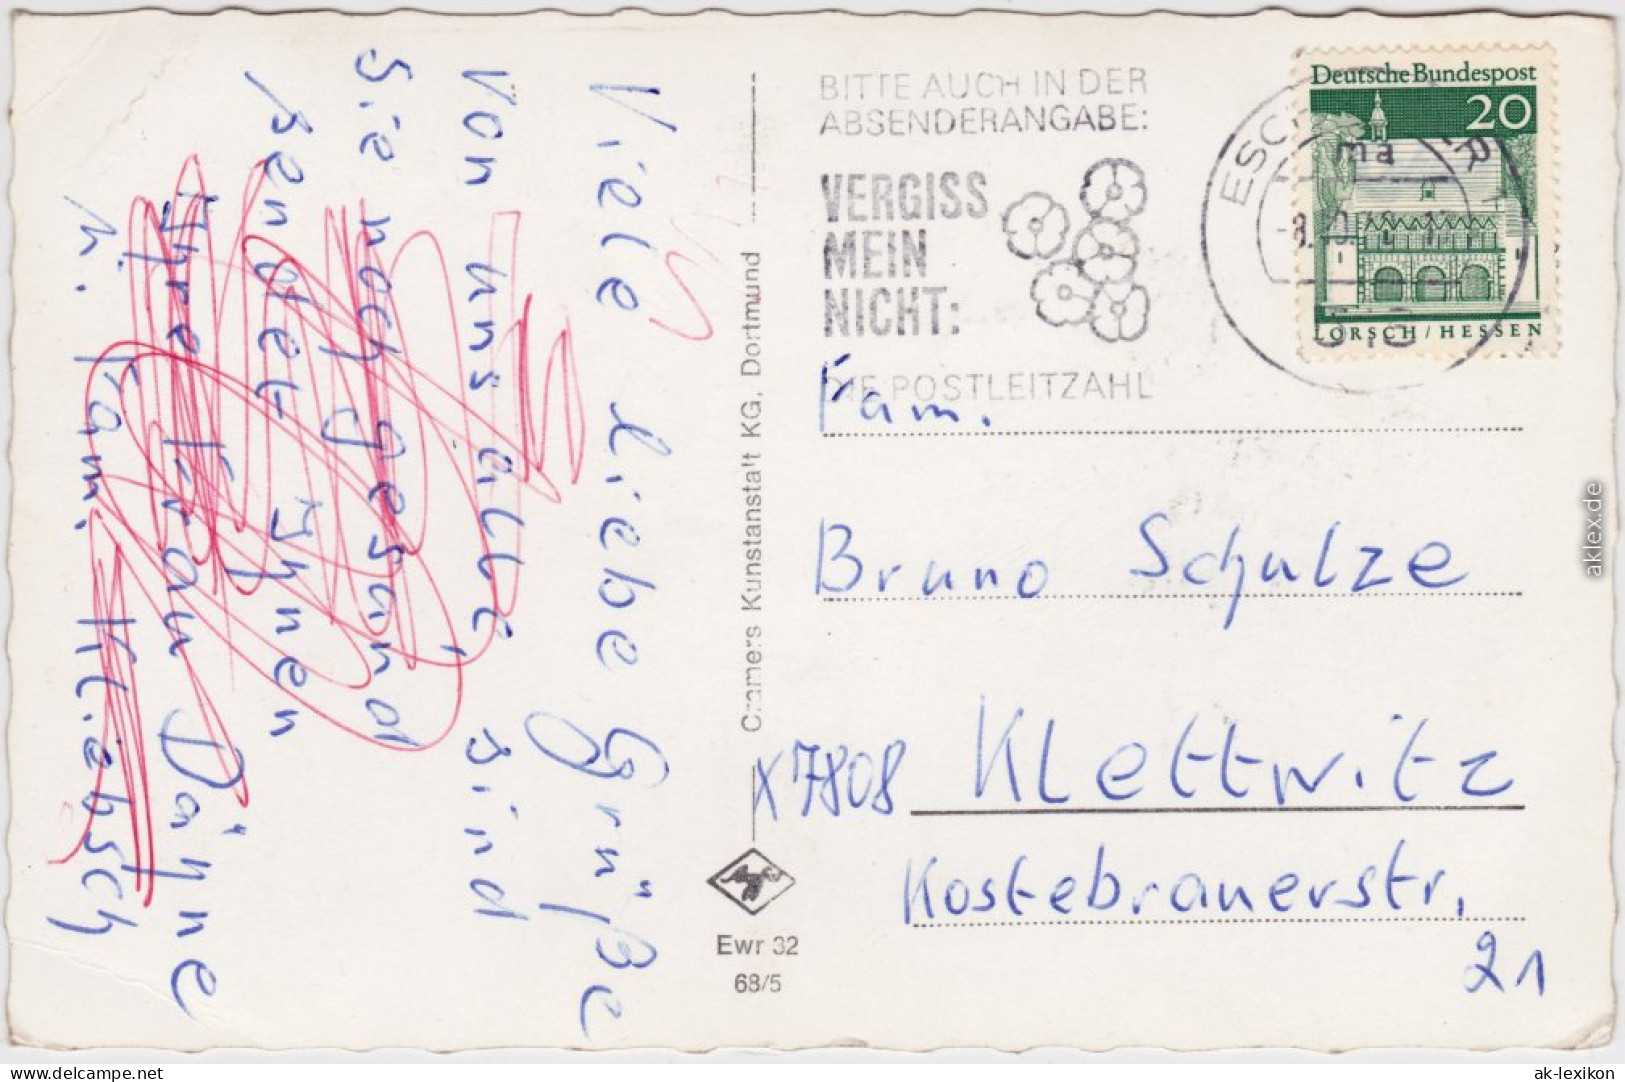 Viele liebe Grüße
Von uns alle, sind
Sie noch gesund
sendet Ihnen
Ihre Frau Dähne
n. Fam. Kliebsch
Cramers Kunstanstalt KG, Dortmund
Ewr 32
68/5
BITTE AUCH IN DER
ABSENDERANGABE:
VERGISS
MEIN
NICHT:
DIE POSTLEITZAHL
Deutsche Bundespost
20
LORSCH/HESSEN
ma
Fam.
Bruno Schulze
X7808 Klettwitz
Kostebrauerstr.
21
aklex.de
delcampe.net
ak-lexikon